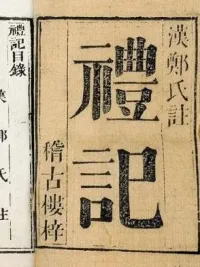 漢鄭氏註
禮記
稽古樓梓
禮記目錄
漢鄭氏註